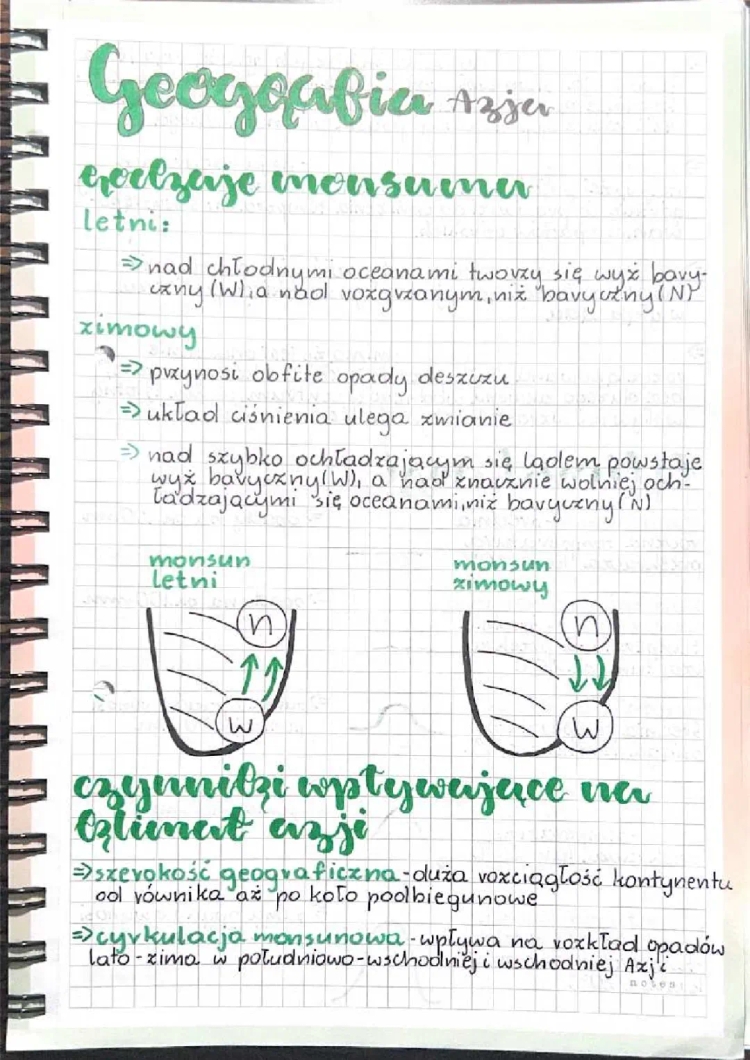 Geografia Azja
rodzaje monsuna
letni:
⇒ nad chłodnymi oceanami tworzy się wyż bary-
czny (W), a nad rozgrzanym, niż baryczny (N)
zimowy
⇒ przynosi obfite opady deszczu
⇒ układ ciśnienia ulega zmianie
⇒ nad szybko ochładzającym się lądem powstaje
wyż baryczny (W), a nad znacznie wolniej och-
ładzającymi się oceanami, niż baryczny (N)
monsun
letni
n
w
monsun
zimowy
n
w
czynniki wpływające na
klimat azji
⇒ szerokość geograficzna - duża rozciągłość kontynentu
od równika aż po koło podbiegunowe
⇒ cyrkulacja monsunowa - wpływa na rozkład opadów
lato - zima w południowo-wschodniej i wschodniej Azji